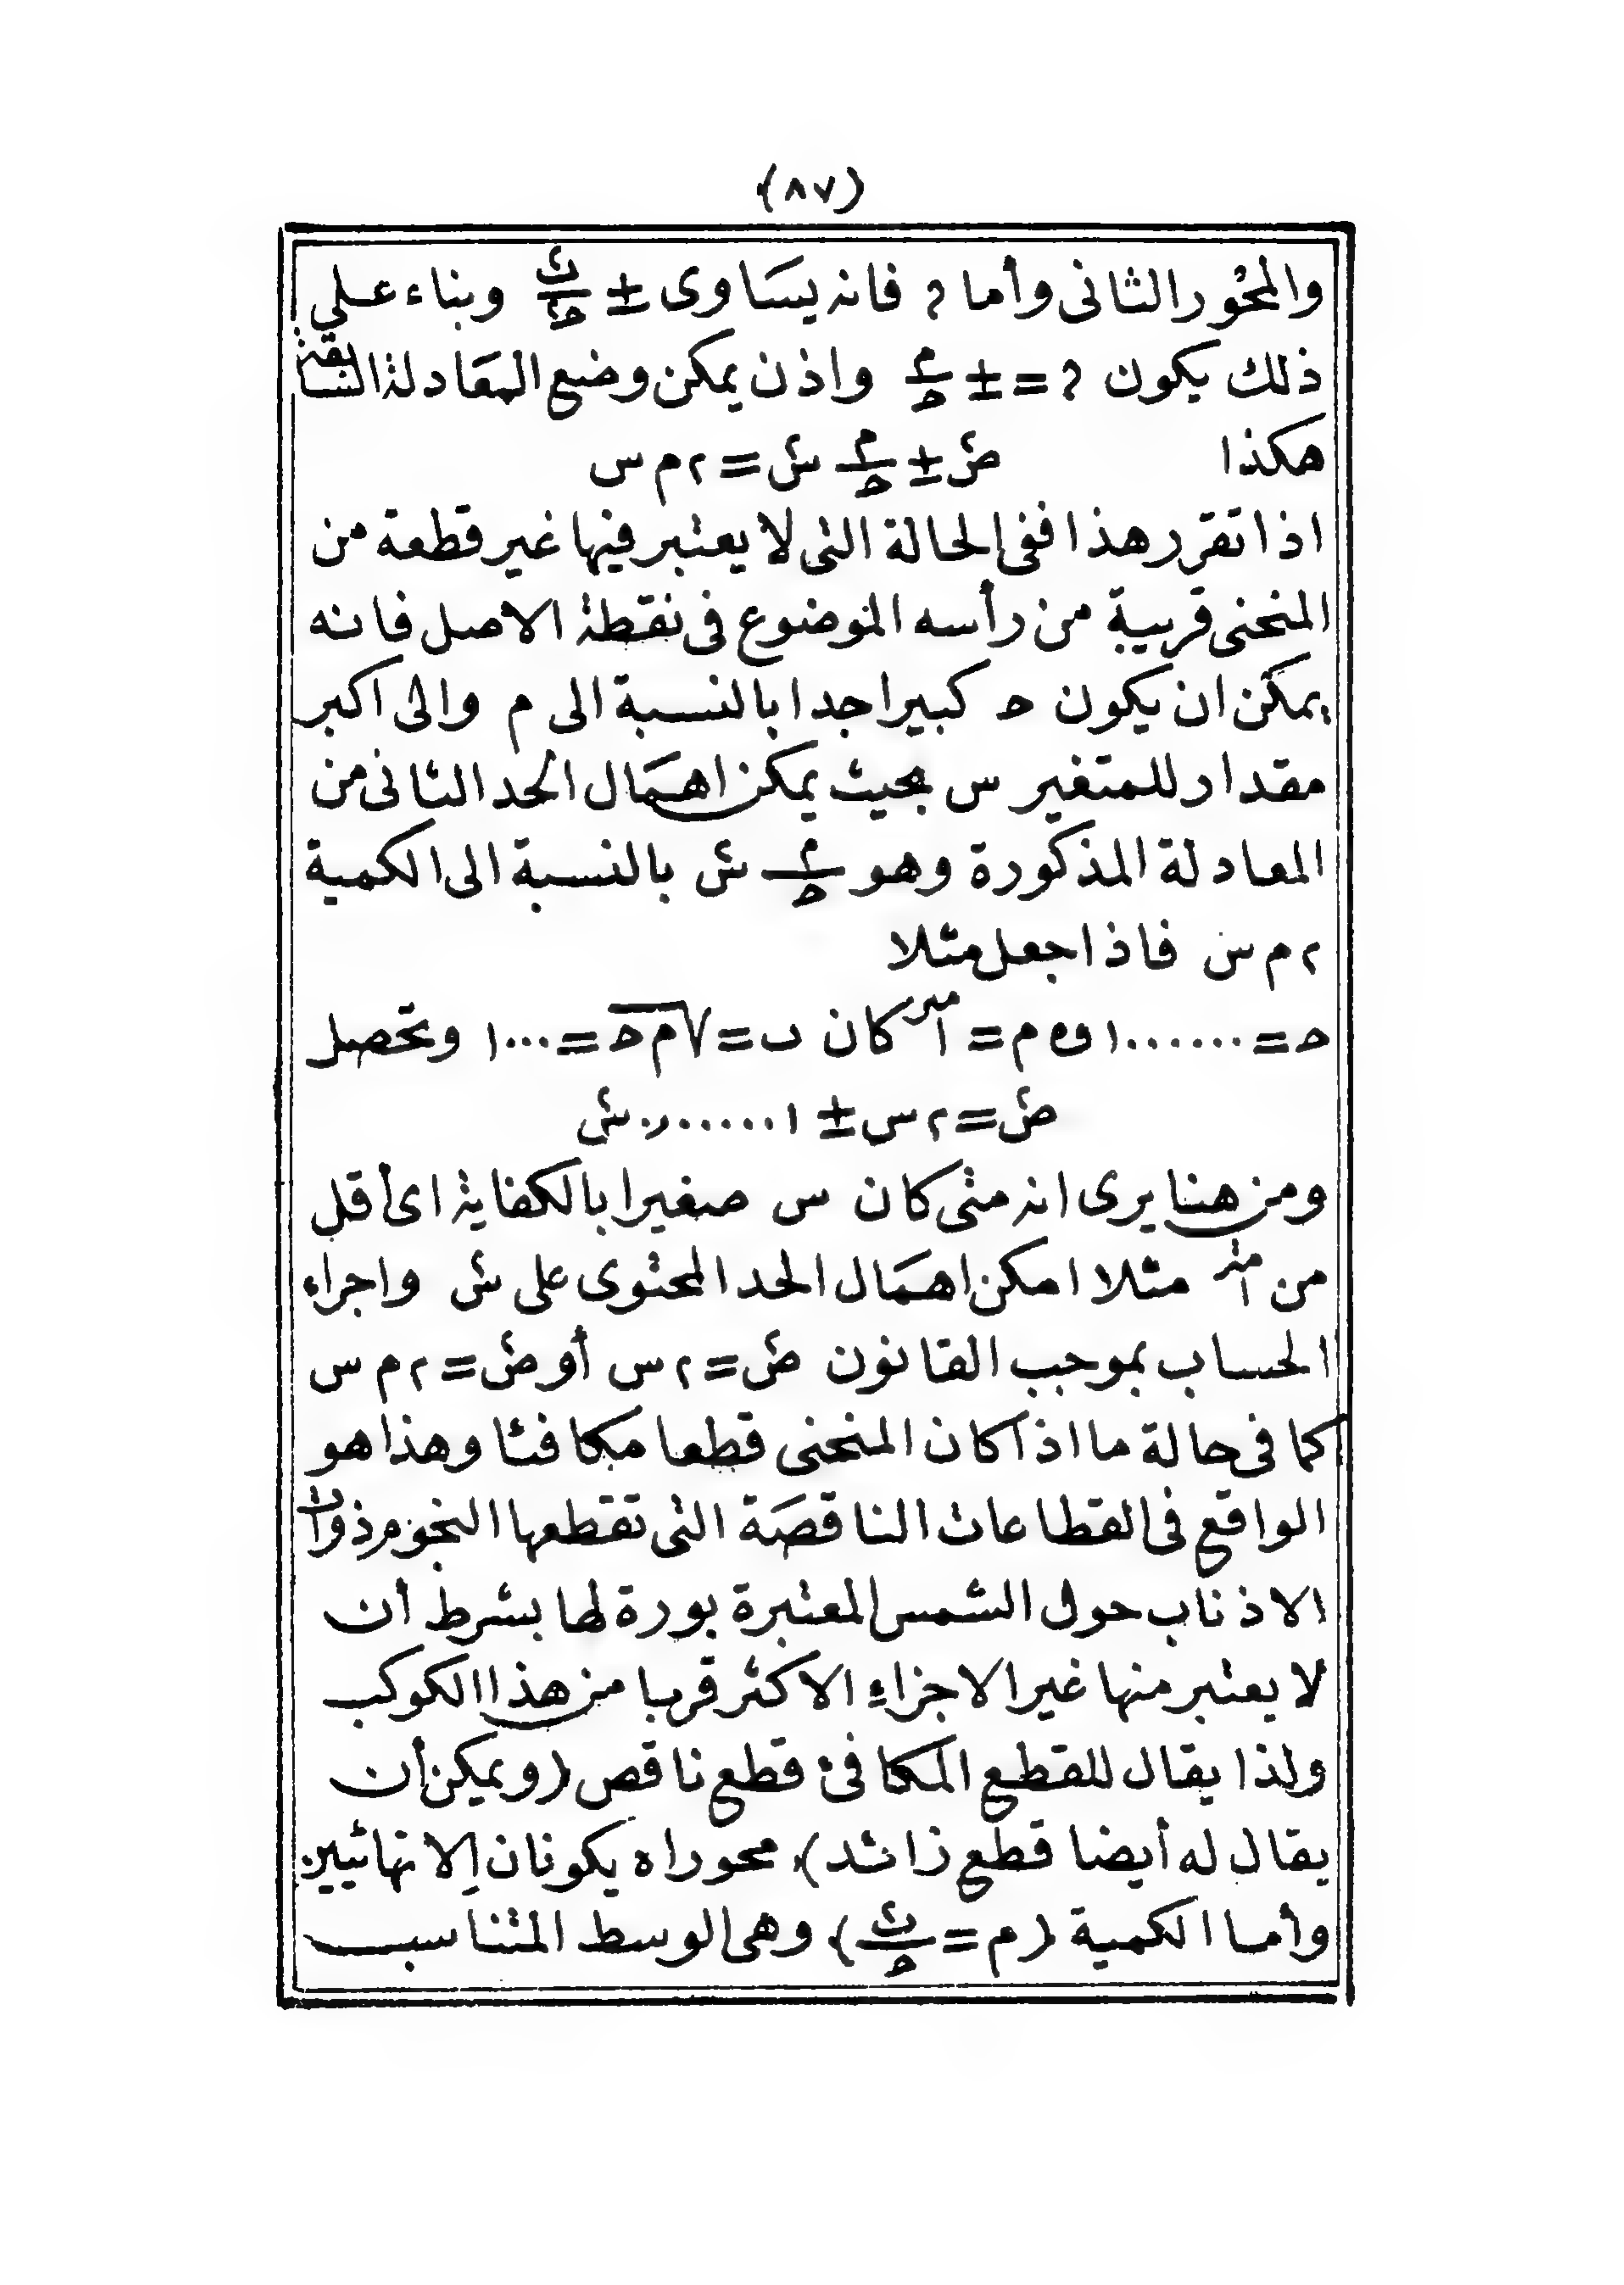 (٨٧)
والمحور الثانى وأما ? فانه يسَاوى ± ب٢/ح٢ وبناء على
ذلك يكون ? = ± م/ح واذن يمكن وضع المعَادلة السَّابقة
هكذا ص٢ ± م/ح س٢ = ٢ م س
اذا تقرر هذا ففى الحالة التى لا يعتبر فيها غير قطعة من
المنحنى قريبة من رأسه الموضوع فى نقطة الاصل فانه
يمكن ان يكون ح كبيرا جدا بالنسبة الى م والى اكبر
مقدار للمتغير س بحيث يمكن اهمَال الحد الثانى من
المعادلة المذكورة وهو م/ح س٢ بالنسبة الى الكمية
٢ م س فاذا جعل مثلا
ح = ١٠٠٠٠٠٠ و م = ١متر كان ب = √م ح = ١٠٠٠ وتحصل
ص٢ = ٢ س ± ٠٫٠٠٠٠٠١ س٢
ومن هنا يرى انه متى كان س صغيرا بالكفاية اى أقل
من ١متر مثلا امكن اهمَال الحد المحتوى على س٢ واجراء
الحساب بموجب القانون ص٢ = ٢ س أو ص٢ = ٢ م س
كما فى حالة ما اذا كان المنحنى قطعا مكافئا وهذا هو
الواقع فى القطاعات الناقصَة التى تقطعها النجوم ذوات
الاذناب حول الشمس المعتبرة بورة لها بشرط أن
لا يعتبر منها غير الاجزاء الاكثر قربا من هذا الكوكب
ولذا يقال للقطع المكافئ قطع ناقص (ويمكن أن
يقال له أيضا قطع زائد) محوراه يكونان لانهائيين
وأما الكمية (م = ب٢/ح) وهى الوسط المتناسب